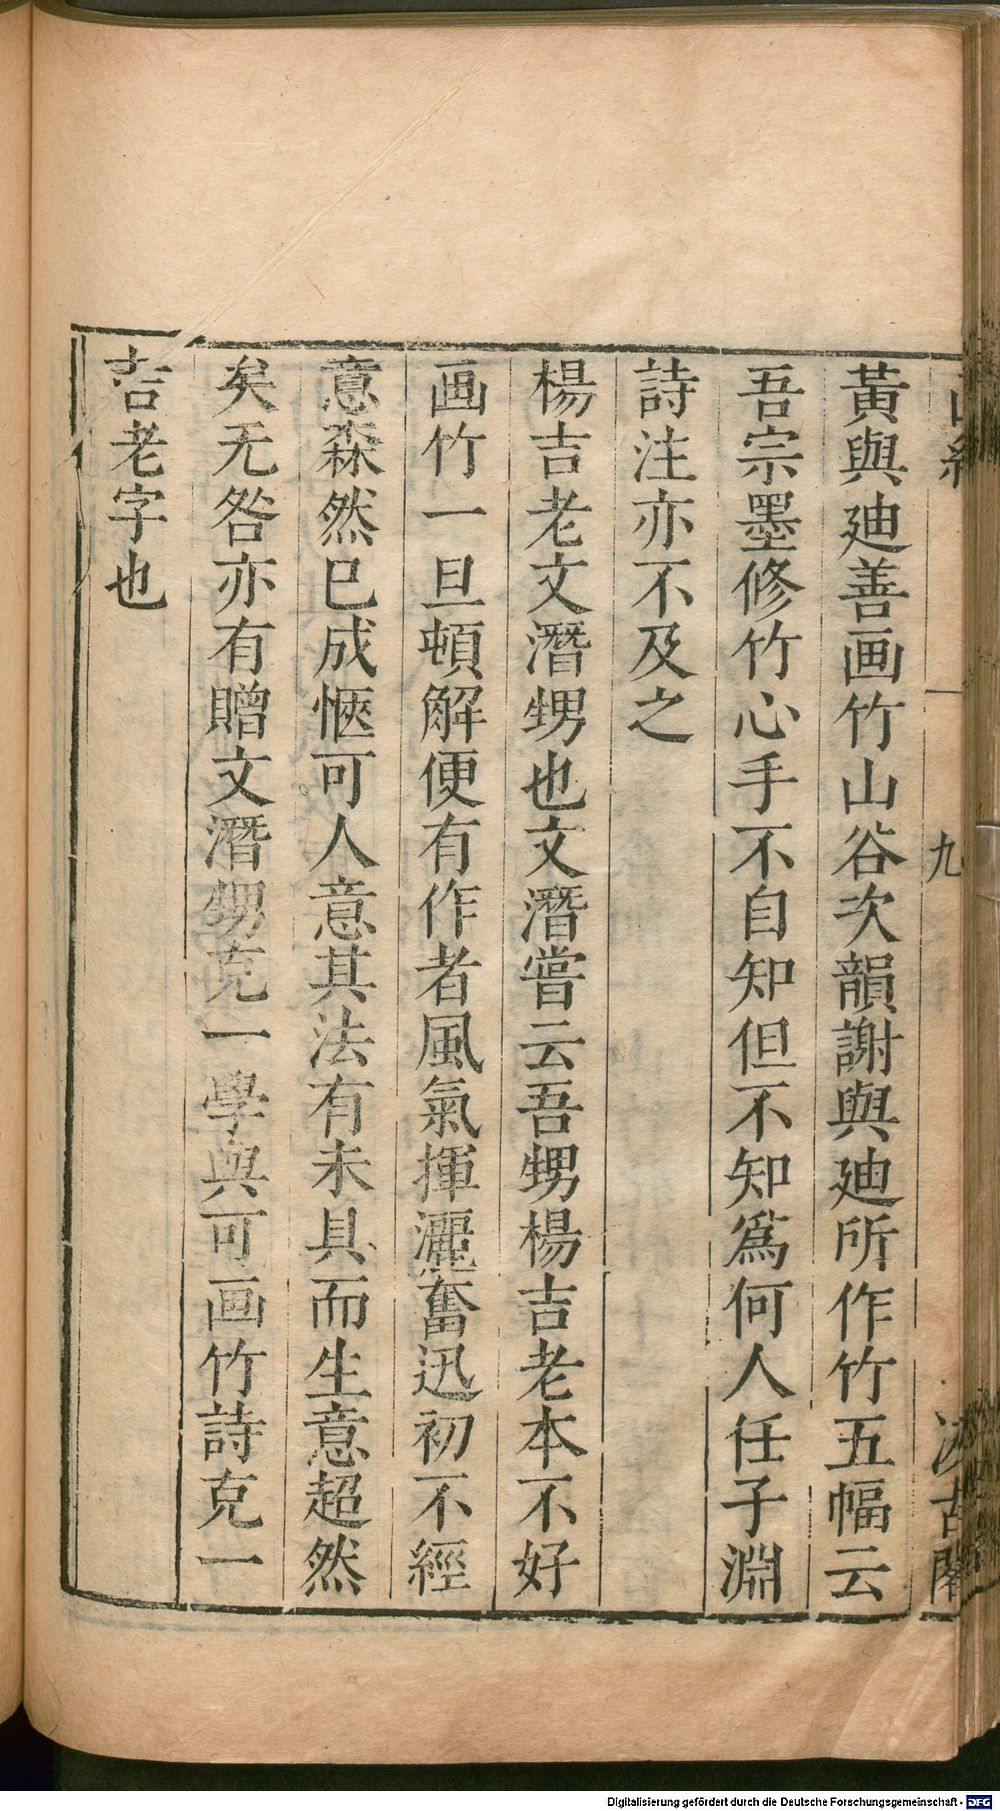 黃與廸善画竹山谷次韻謝與廸所作竹五幅云
吾宗墨修竹心手不自知但不知爲何人任子淵
詩注亦不及之
楊吉老文潛甥也文潛嘗云吾甥楊吉老本不好
画竹一旦頓解便有作者風氣揮灑奮迅初不經
意森然已成愜可人意其法有未具而生意超然
矣无咎亦有贈文潛甥克一學與可画竹詩克一
吉老字也
九
汲古閣
Digitalisierung gefördert durch die Deutsche Forschungsgemeinschaft - DFG